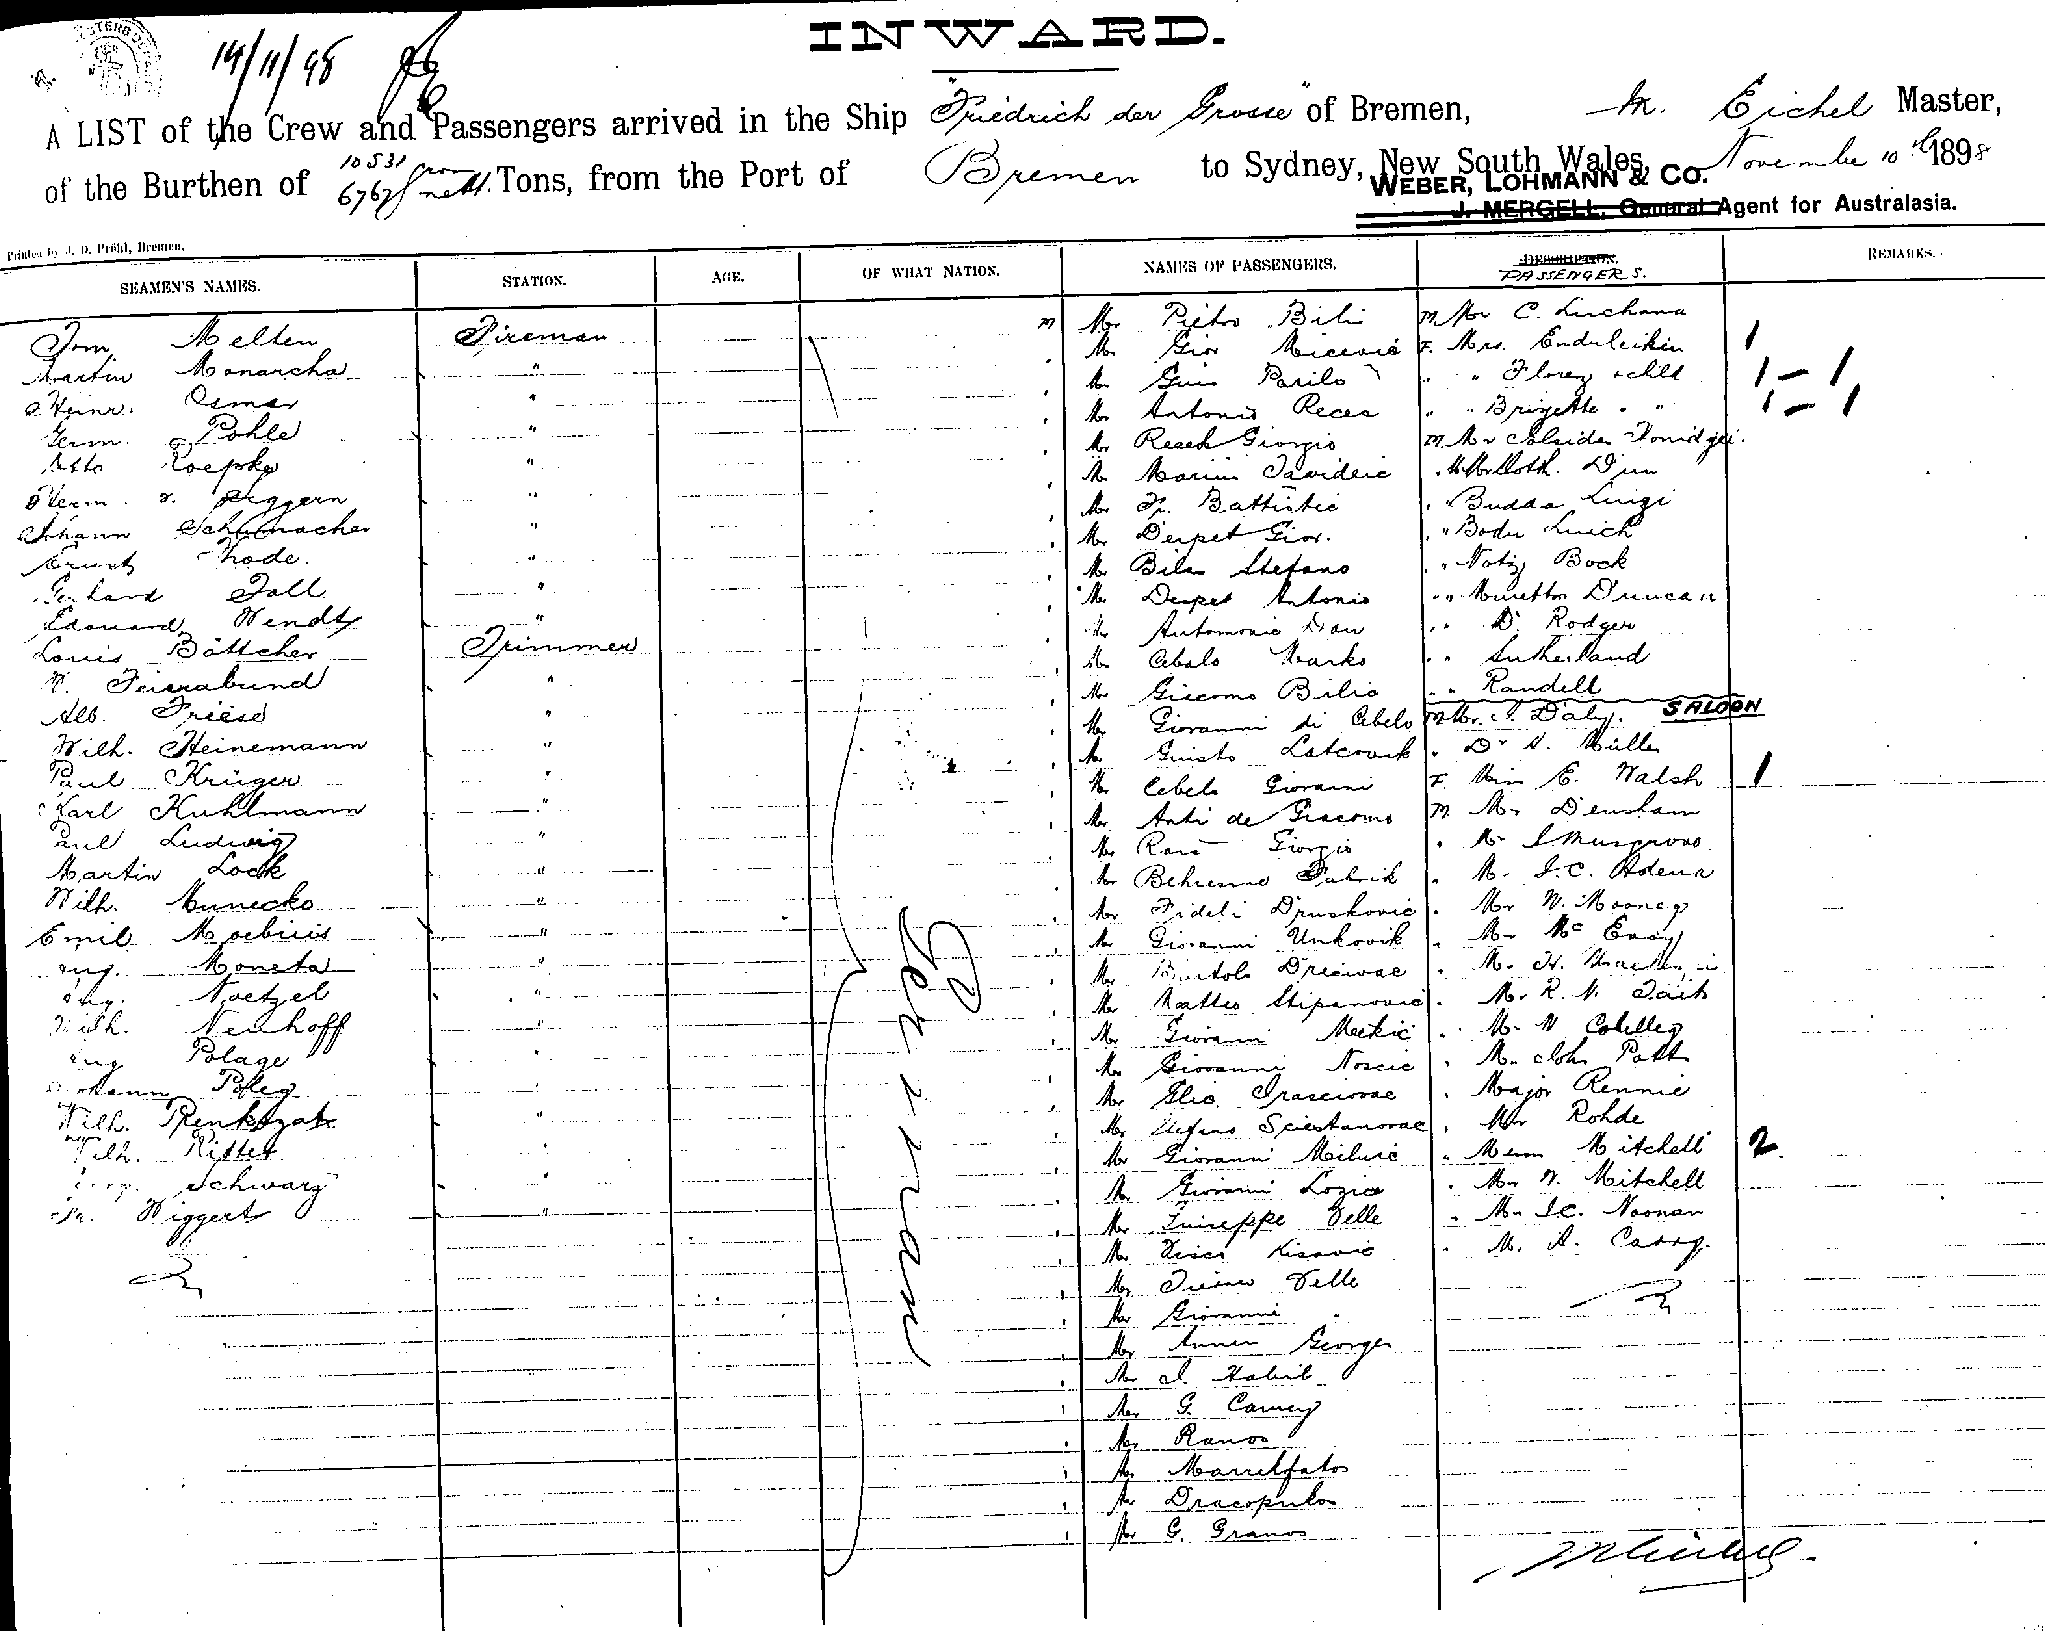 INWARD.
14/11/98
A LIST of the Crew and Passengers arrived in the Ship "Friedrich der Grosse" of Bremen, M. Eichel Master,
of the Burthen of 10531 gross 6767 nett. Tons, from the Port of Bremen to Sydney, New South Wales, November 10th 1898
WEBER, LOHMANN & CO.
J. MERGELL, General Agent for Australasia.
Printed by J. D. Pröhl, Bremen.
SEAMEN'S NAMES. STATION. AGE. OF WHAT NATION. NAMES OF PASSENGERS. DESCRIPTION. PASSENGERS. REMARKS.
Tom Melten Fireman
Martin Monarcha "
Heinr. Osmer "
Herm. Pohle "
Otto Roepke "
Herm. v. Seggern "
Johann Schumacher "
Ernst Thode. "
Gerhard Toll "
Edouard Wendt "
Louis Böttcher Trimmer
Feierabend "
Alb. Friese "
Wilh. Heinemann "
Paul Krüger "
Karl Kuhlmann "
Paul Ludwig "
Martin Lock "
Wilh. Munecko "
Emil Moebius "
Aug. Moneta "
Aug. Noetzel "
Wilh. Neuhoff "
Aug Polage "
Johann Poleg "
Wilh. "
Wilh. Ritter "
Schwarz "
Wiggert "
German
m Mr Pietro Bili
Mr Giov Micevic
Mr Parilo
Mr Antonio Reces
Mr Reach Giorgio
Mr Marin Tavideic
Mr Fr. Battistic
Mr Derpet Giov.
Mr Bilas Stefano
Mr Derpet Antonio
Mr Antonovic Dau
Mr Cebalo Marko
Mr Giacomo Bilis
Mr Giovanni di Cebelo
Mr Giusto Latcovich
Mr Cebelo Giovanni
Mr Anti de Giacomo
Mr Giorgio
Mr Patrik
Mr Fideli Druskovic
Mr Giovanni Unkovik
Mr Bartolo
Mr Matteo Stipanovic
Mr Giovanni Meckic
Mr Giovanni Noscic
Mr Elia
Mr Stefano
Mr Giovanni Miluic
Mr Giovanni Lozica
Mr Giuseppe Velle
Mr Kisovic
Mr Velle
Mr Giovanni "
Mr Annen George
Mr J. Habib
Mr G. Camery
Mr Ranos
Mr
Mr Dracopulos
Mr G. Granos
m Mr C. Luchana
F. Mrs. 1
" " Florez & child 1 – 1
" " Brigette " " 1 – 1
m Mr
" Mr Loth. Dun
" " Budda Luigi
" " Bodu Luich
" " Notiz Bock
" " Duncan
" " D. Rodger
" " Sutherland
" " Randell
SALOON
m Mr. J. Daly.
" Dr A. Müller
F Miss E. Walsh 1
m Mr Denham
" Mr J Musgrove
" Mr J. C. Adena
" Mr W. Mooney
" Mr Mc Evoy
" Mr H.
" Mr R. N. Tait
" Mr W Colelley
" Mr John Patt
" Major Rennie
" Mr Rohde
" Mitchell 2
" Mr W. Mitchell
" Mr J. C. Noonan
" Mr A. Casey.